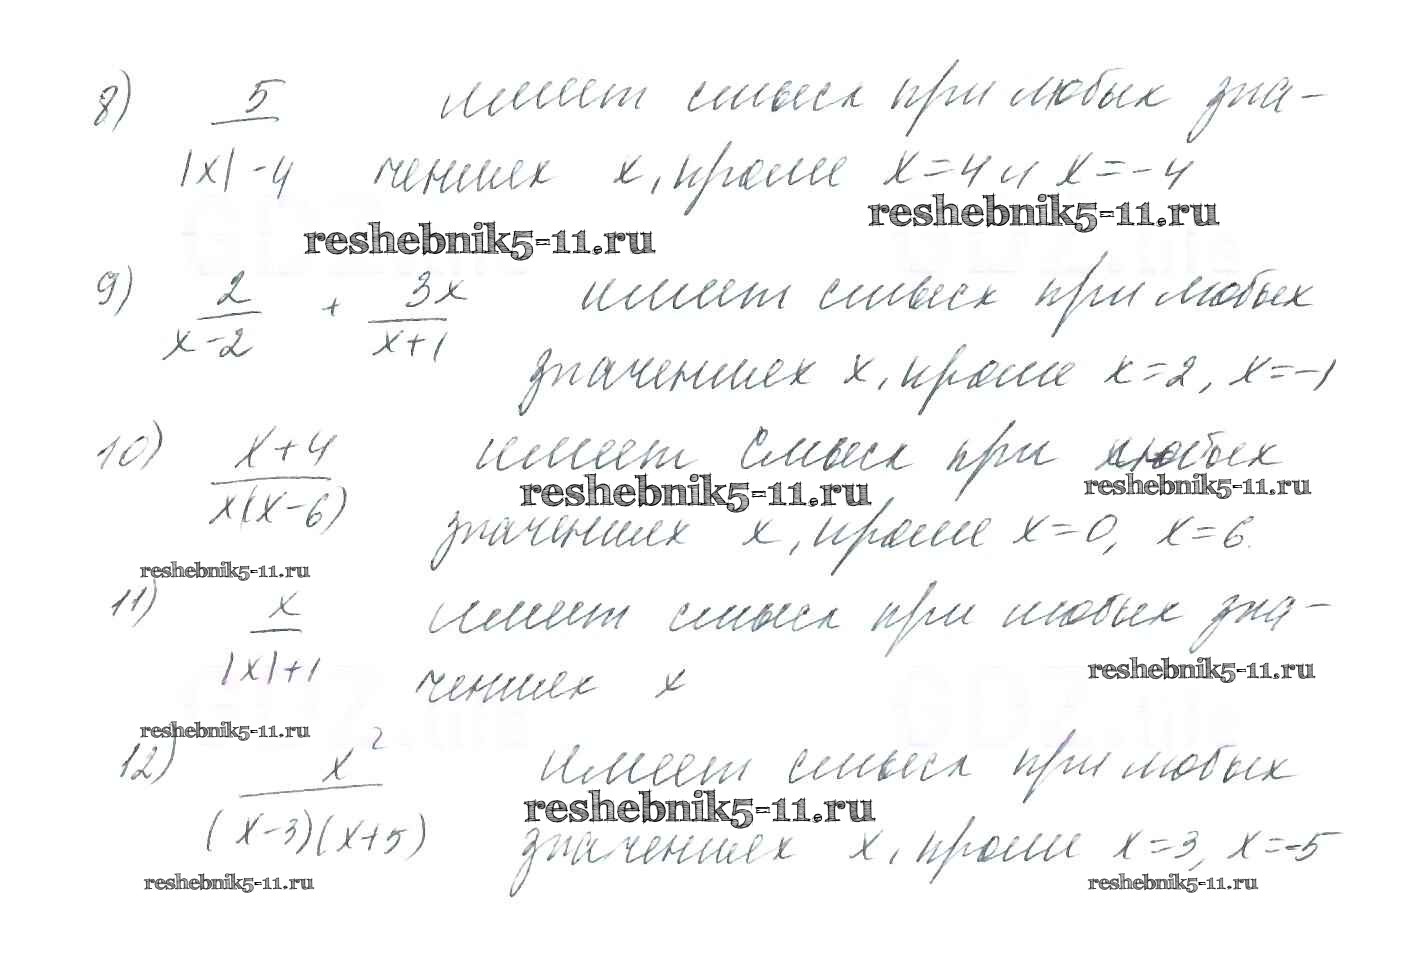 8) 5 имеет смысл при любых зна-
|x| - 4 чениях x, кроме x = 4 и x = -4
reshebnik5-11.ru reshebnik5-11.ru
9) 2 + 3x имеет смысл при любых
x - 2 x + 1
значениях x, кроме x = 2, x = -1
10) x + 4 имеет смысл при любых
reshebnik5-11.ru reshebnik5-11.ru
x(x - 6) значениях x, кроме x = 0, x = 6.
reshebnik5-11.ru
11) x имеет смысл при любых зна-
|x| + 1 чениях x
reshebnik5-11.ru
reshebnik5-11.ru
12) x² имеет смысл при любых
reshebnik5-11.ru
(x - 3)(x + 5) значениях x, кроме x = 3, x = -5
reshebnik5-11.ru reshebnik5-11.ru